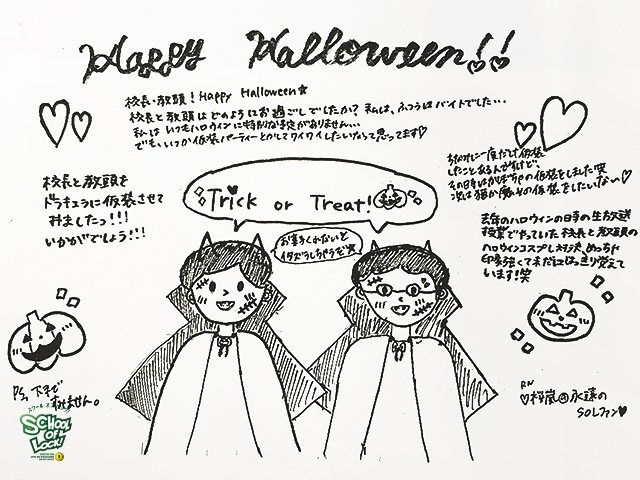 Happy Halloween!!
校長・教頭！Happy Halloween☆
校長と教頭はどのようにお過ごしでしたか？私は、ふつうにバイトでした…
私はいつもハロウィンに特別な予定がありません…
でも、いつか仮装パーティーとかしてワイワイしたいなって思ってます♡
ちなみに一度だけ仮装
したことあるんですけど、
その日はかぼちゃの仮装をしました笑
次は猫か魔女の仮装をしたいなぁ♡
校長と教頭を
ドラキュラに仮装させて
みましたっ!!!
いかがでしょう!!!
Trick or Treat!
お菓子くれないと
イタズラしちゃうぞ
去年のハロウィンの日の生放送
授業でやっていた校長と教頭の
ハロウィンコスプレ対決、めっちゃ
印象強くて未だにはっきり覚えて
います！笑
P.S. 下手で
すみません。
スクール オブ
SCHOOL OF LOCK!
RN
♡桜嵐@永遠の
SOLファン♥